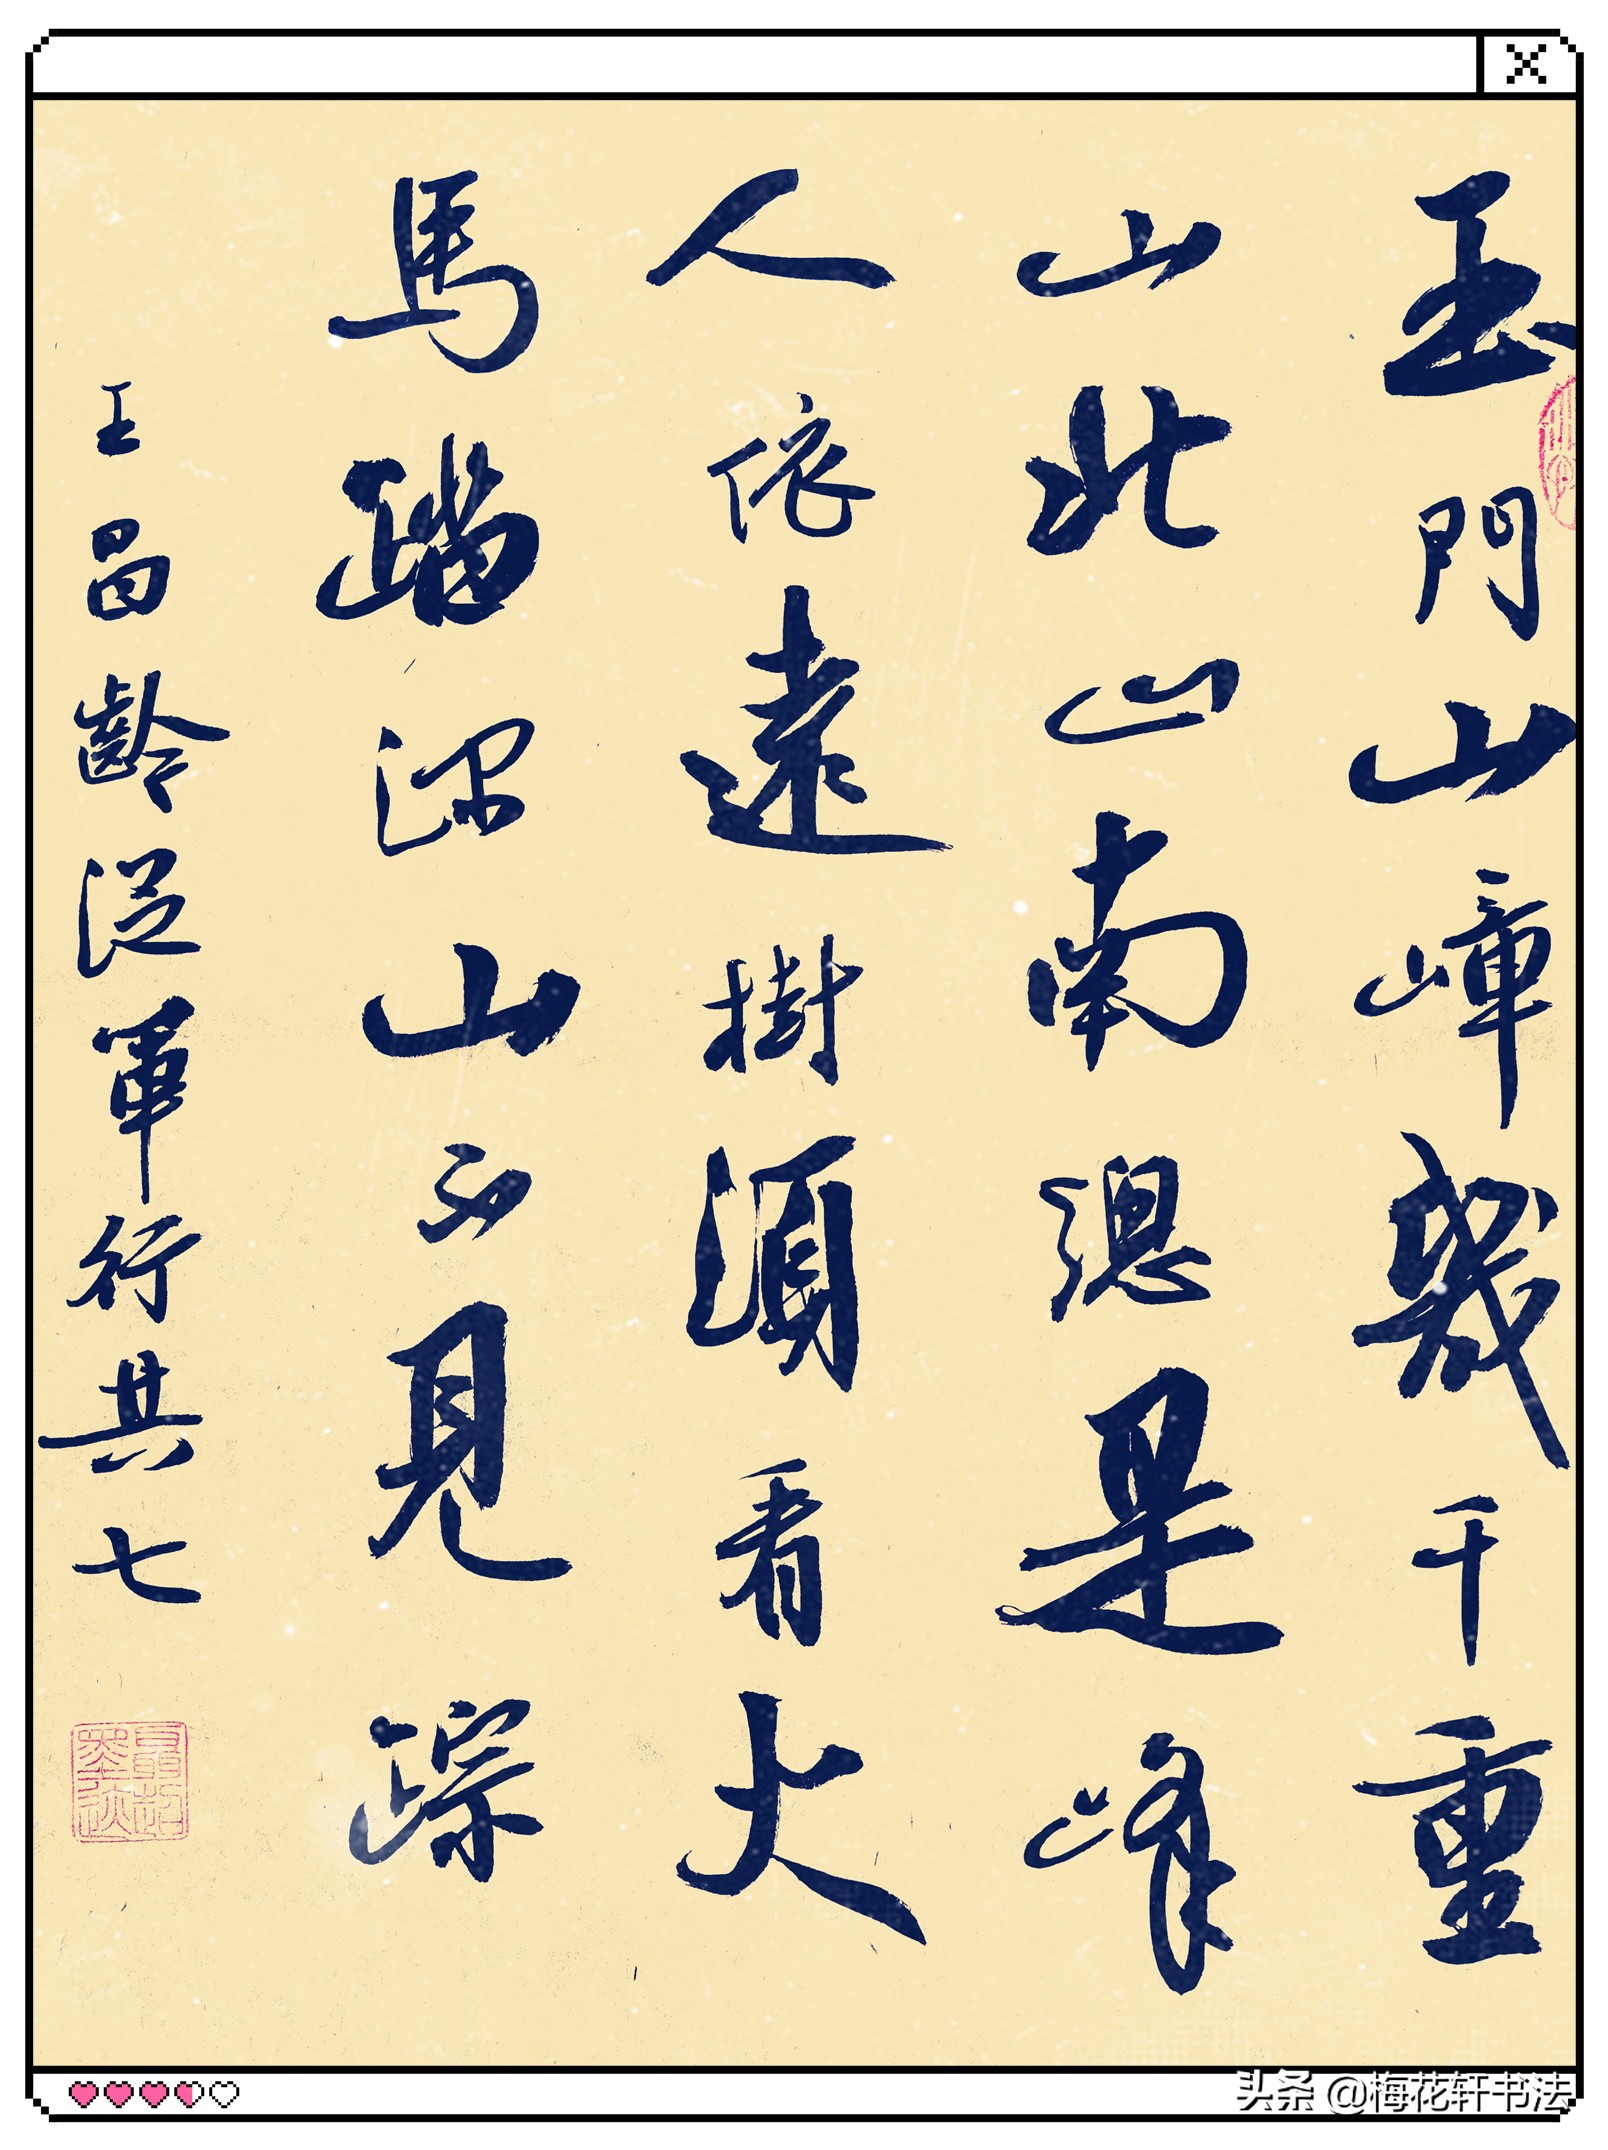 玉門山嶂幾千重
山北山南總是峰
人依遠樹須看火
馬踏深山不見踪
王昌齡從軍行其七
头条 @梅花轩书法